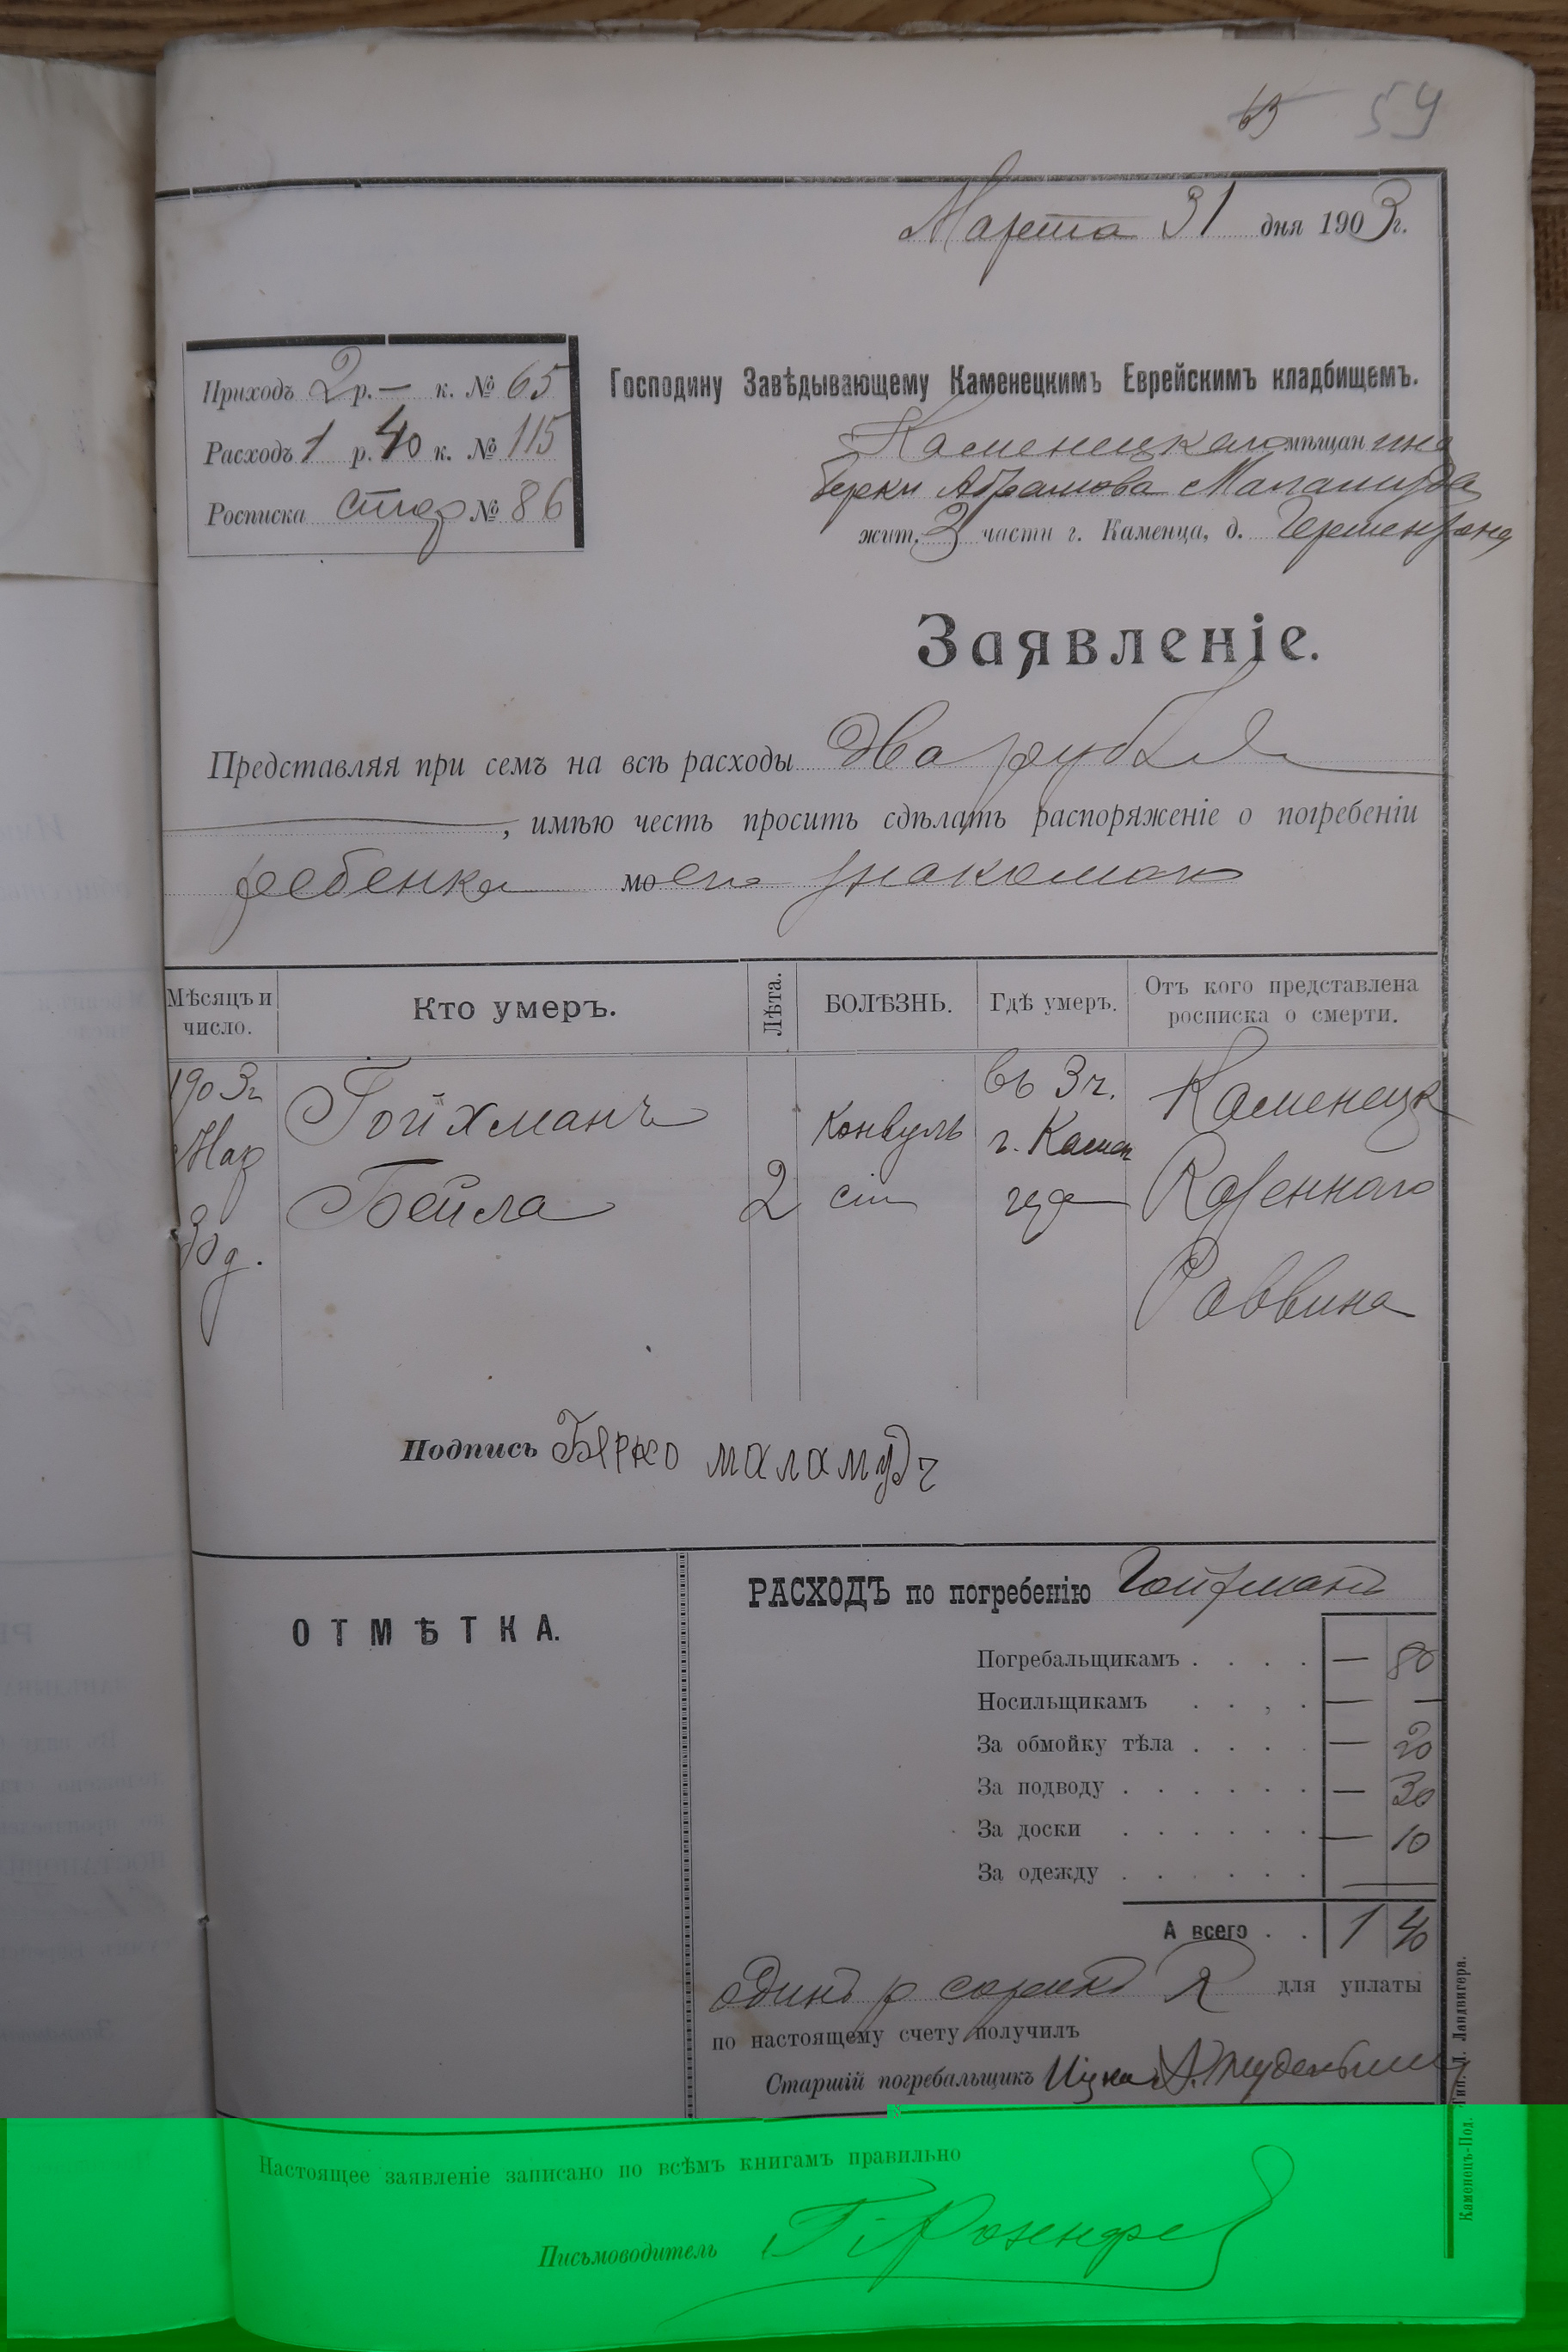 63 59
Марта 31 дня 1903 г.
Приходъ 2 р. — к. № 65
Расходъ 1 р. 40 к. № 115
Росписка стар № 86
Господину Завѣдывающему Каменецкимъ Еврейскимъ кладбищемъ.
Каменецкаго мѣщанина
Берки Абрамова Маламуда
жит. 3 части г. Каменца, д.
Заявленіе.
Представляя при семъ на всѣ расходы два рубля
, имѣю честь просить сдѣлать распоряженіе о погребеніи
ребенка моего знакомаго
Мѣсяцъ и число. Кто умеръ. Лѣта. БОЛѢЗНЬ. Гдѣ умеръ. Отъ кого представлена росписка о смерти.
1903 г Гойхманъ въ 3 ч. Каменецк
Мар Конвуль г. Камен
30 д. Бейла 2 сіи Казеннаго
Раввина
Подпись Бярко маламудъ
ОТМѢТКА.
РАСХОДЪ по погребенію Гойхманъ
Погребальщикамъ . . . . — 80
Носильщикамъ . . , . — —
За обмойку тѣла . . . . — 20
За подводу . . . . . . — 30
За доски . . . . . . — 10
За одежду . . . . . . —
А всего . . 1 40
одинъ р сорокъ к для уплаты
по настоящему счету получилъ
Старшій погребальщикъ Ицка
Настоящее заявленіе записано по всѣмъ книгамъ правильно
Письмоводитель Г. Розенфе
Каменецъ-Под. Тип. Л. Ландвигера.